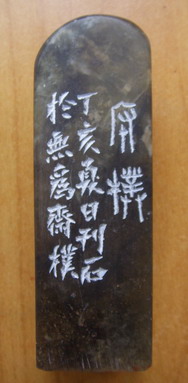 樸
丁亥夏日刊石
於無爲齋樸